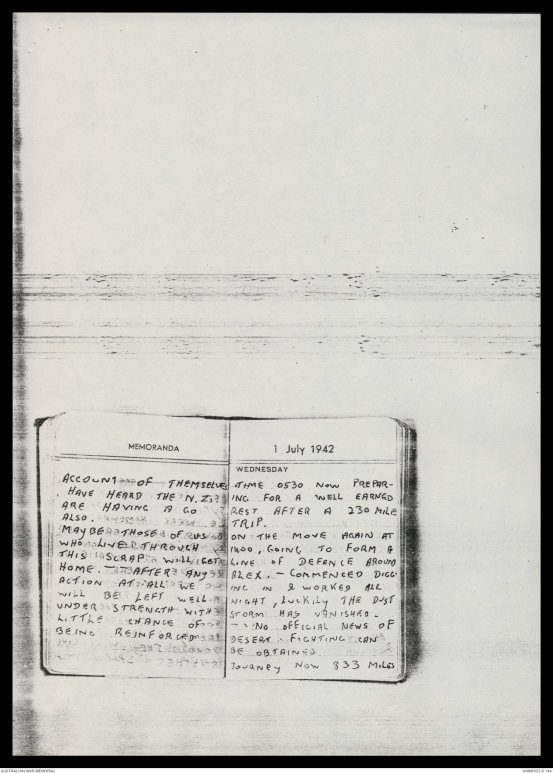 MEMORANDA
ACCOUNT OF THEMSELVES
. HAVE HEARD THE N.Z.
ARE HAVING A GO
ALSO.
MAYBE THOSE OF US
WHO LIVE THROUGH
THIS SCRAP WILL GET
HOME. — AFTER ANY
ACTION AT ALL WE
WILL BE LEFT WELL
UNDER STRENGTH WITH
LITTLE CHANCE OF
BEING REINFORCED
1 July 1942
WEDNESDAY
TIME 0530 NOW PREPAR-
ING FOR A WELL EARNED
REST AFTER A 230 MILE
TRIP.
ON THE MOVE AGAIN AT
1400, GOING TO FORM A
LINE OF DEFENCE AROUND
ALEX. — COMMENCED DIGG-
ING IN & WORKED ALL
NIGHT, LUCKILY THE DUST
STORM HAS VANISHED.
-- NO OFFICIAL NEWS OF
DESERT FIGHTING CAN
BE OBTAINED
JOURNEY NOW 833 MILES
AUSTRALIAN WAR MEMORIAL